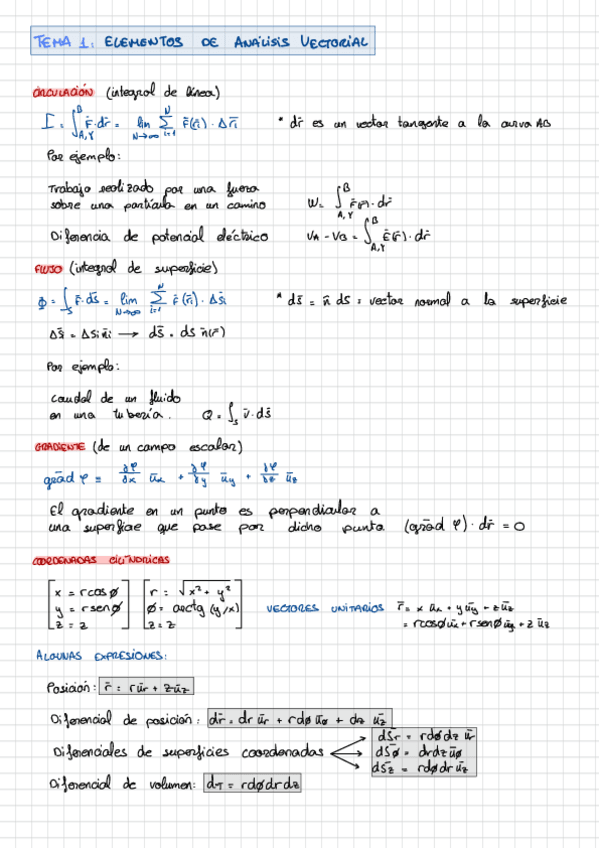 TEMA 1: ELEMENTOS DE ANÁLISIS VECTORIAL
CIRCULACIÓN (integral de línea)
I = ∫_{A,γ}^{B} F̄·dr̄ = lim_{N→∞} Σ_{i=1}^{N} F̄(r̄i)·Δr̄i * dr̄ es un vector tangente a la curva AB
Por ejemplo:
Trabajo realizado por una fuerza
sobre una partícula en un camino W = ∫_{A,γ}^{B} F̄(r̄)·dr̄
Diferencia de potencial eléctrico VA - VB = ∫_{A,γ}^{B} Ē(r̄)·dr̄
FLUJO (integral de superficie)
Φ = ∫_S F̄·ds̄ = lim_{N→∞} Σ_{i=1}^{N} F̄(r̄i)·Δs̄i * ds̄ = n̄ ds = vector normal a la superficie
Δs̄i = Δsi n̄i → ds̄ = ds n̄(r̄)
Por ejemplo:
Caudal de un fluido
en una tubería. Q = ∫_S v̄·ds̄
GRADIENTE (de un campo escalar)
grad φ = ∂φ/∂x ūx + ∂φ/∂y ūy + ∂φ/∂z ūz
El gradiente en un punto es perpendicular a
una superficie que pase por dicho punto (grad φ)·dr̄ = 0
COORDENADAS CILÍNDRICAS
x = r cos ø r = √x² + y²
y = r sen ø ø = arctg (y/x) VECTORES UNITARIOS r̄ = x ūx + y ūy + z ūz
z = z z = z = r cos ø ūx + r sen ø ūy + z ūz
ALGUNAS EXPRESIONES:
Posición: r̄ = r ūr + z ūz
Diferencial de posición: dr̄ = dr ūr + r dø ūø + dz ūz
dS̄r = r dø dz ūr
Diferenciales de superficies coordenadas dS̄ø = dr dz ūø
dS̄z = r dø dr ūz
Diferencial de volumen: dτ = r dø dr dz